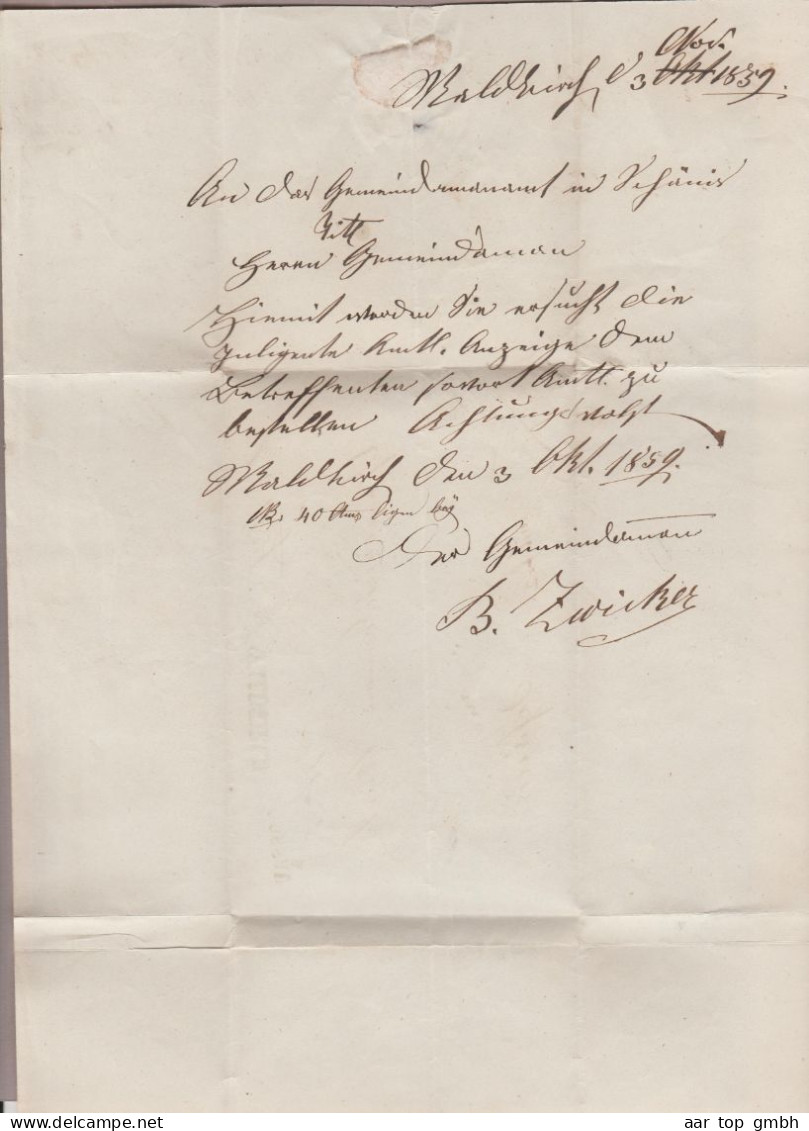 Nov.
Waldkirch d 3 Okt 1859.
An das Gemeindamanamt in Schänis
Titt
Herrn Gemeindaman
Hiemit werden Sie ersucht die
Inligente Amtl. Anzeige dem
Betreffenten sovort Amtl. zu
bestellen Achtungsvolst
Waldkirch den 3 Okt. 1859.
NB. 40 Cms ligen bëÿ
Der Gemeindaman
B. Zwicker
aar top gmbh